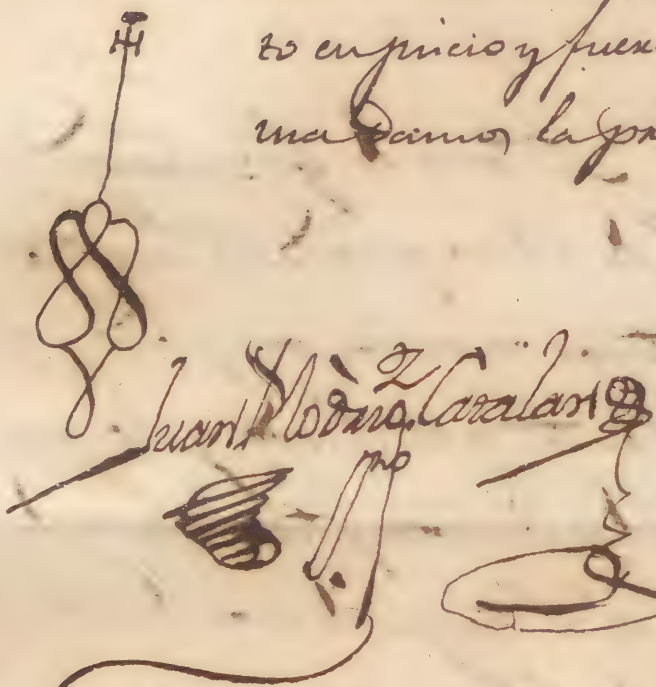 to en juicio y fuer
ma damos la pr
z
Juan Catalan
no